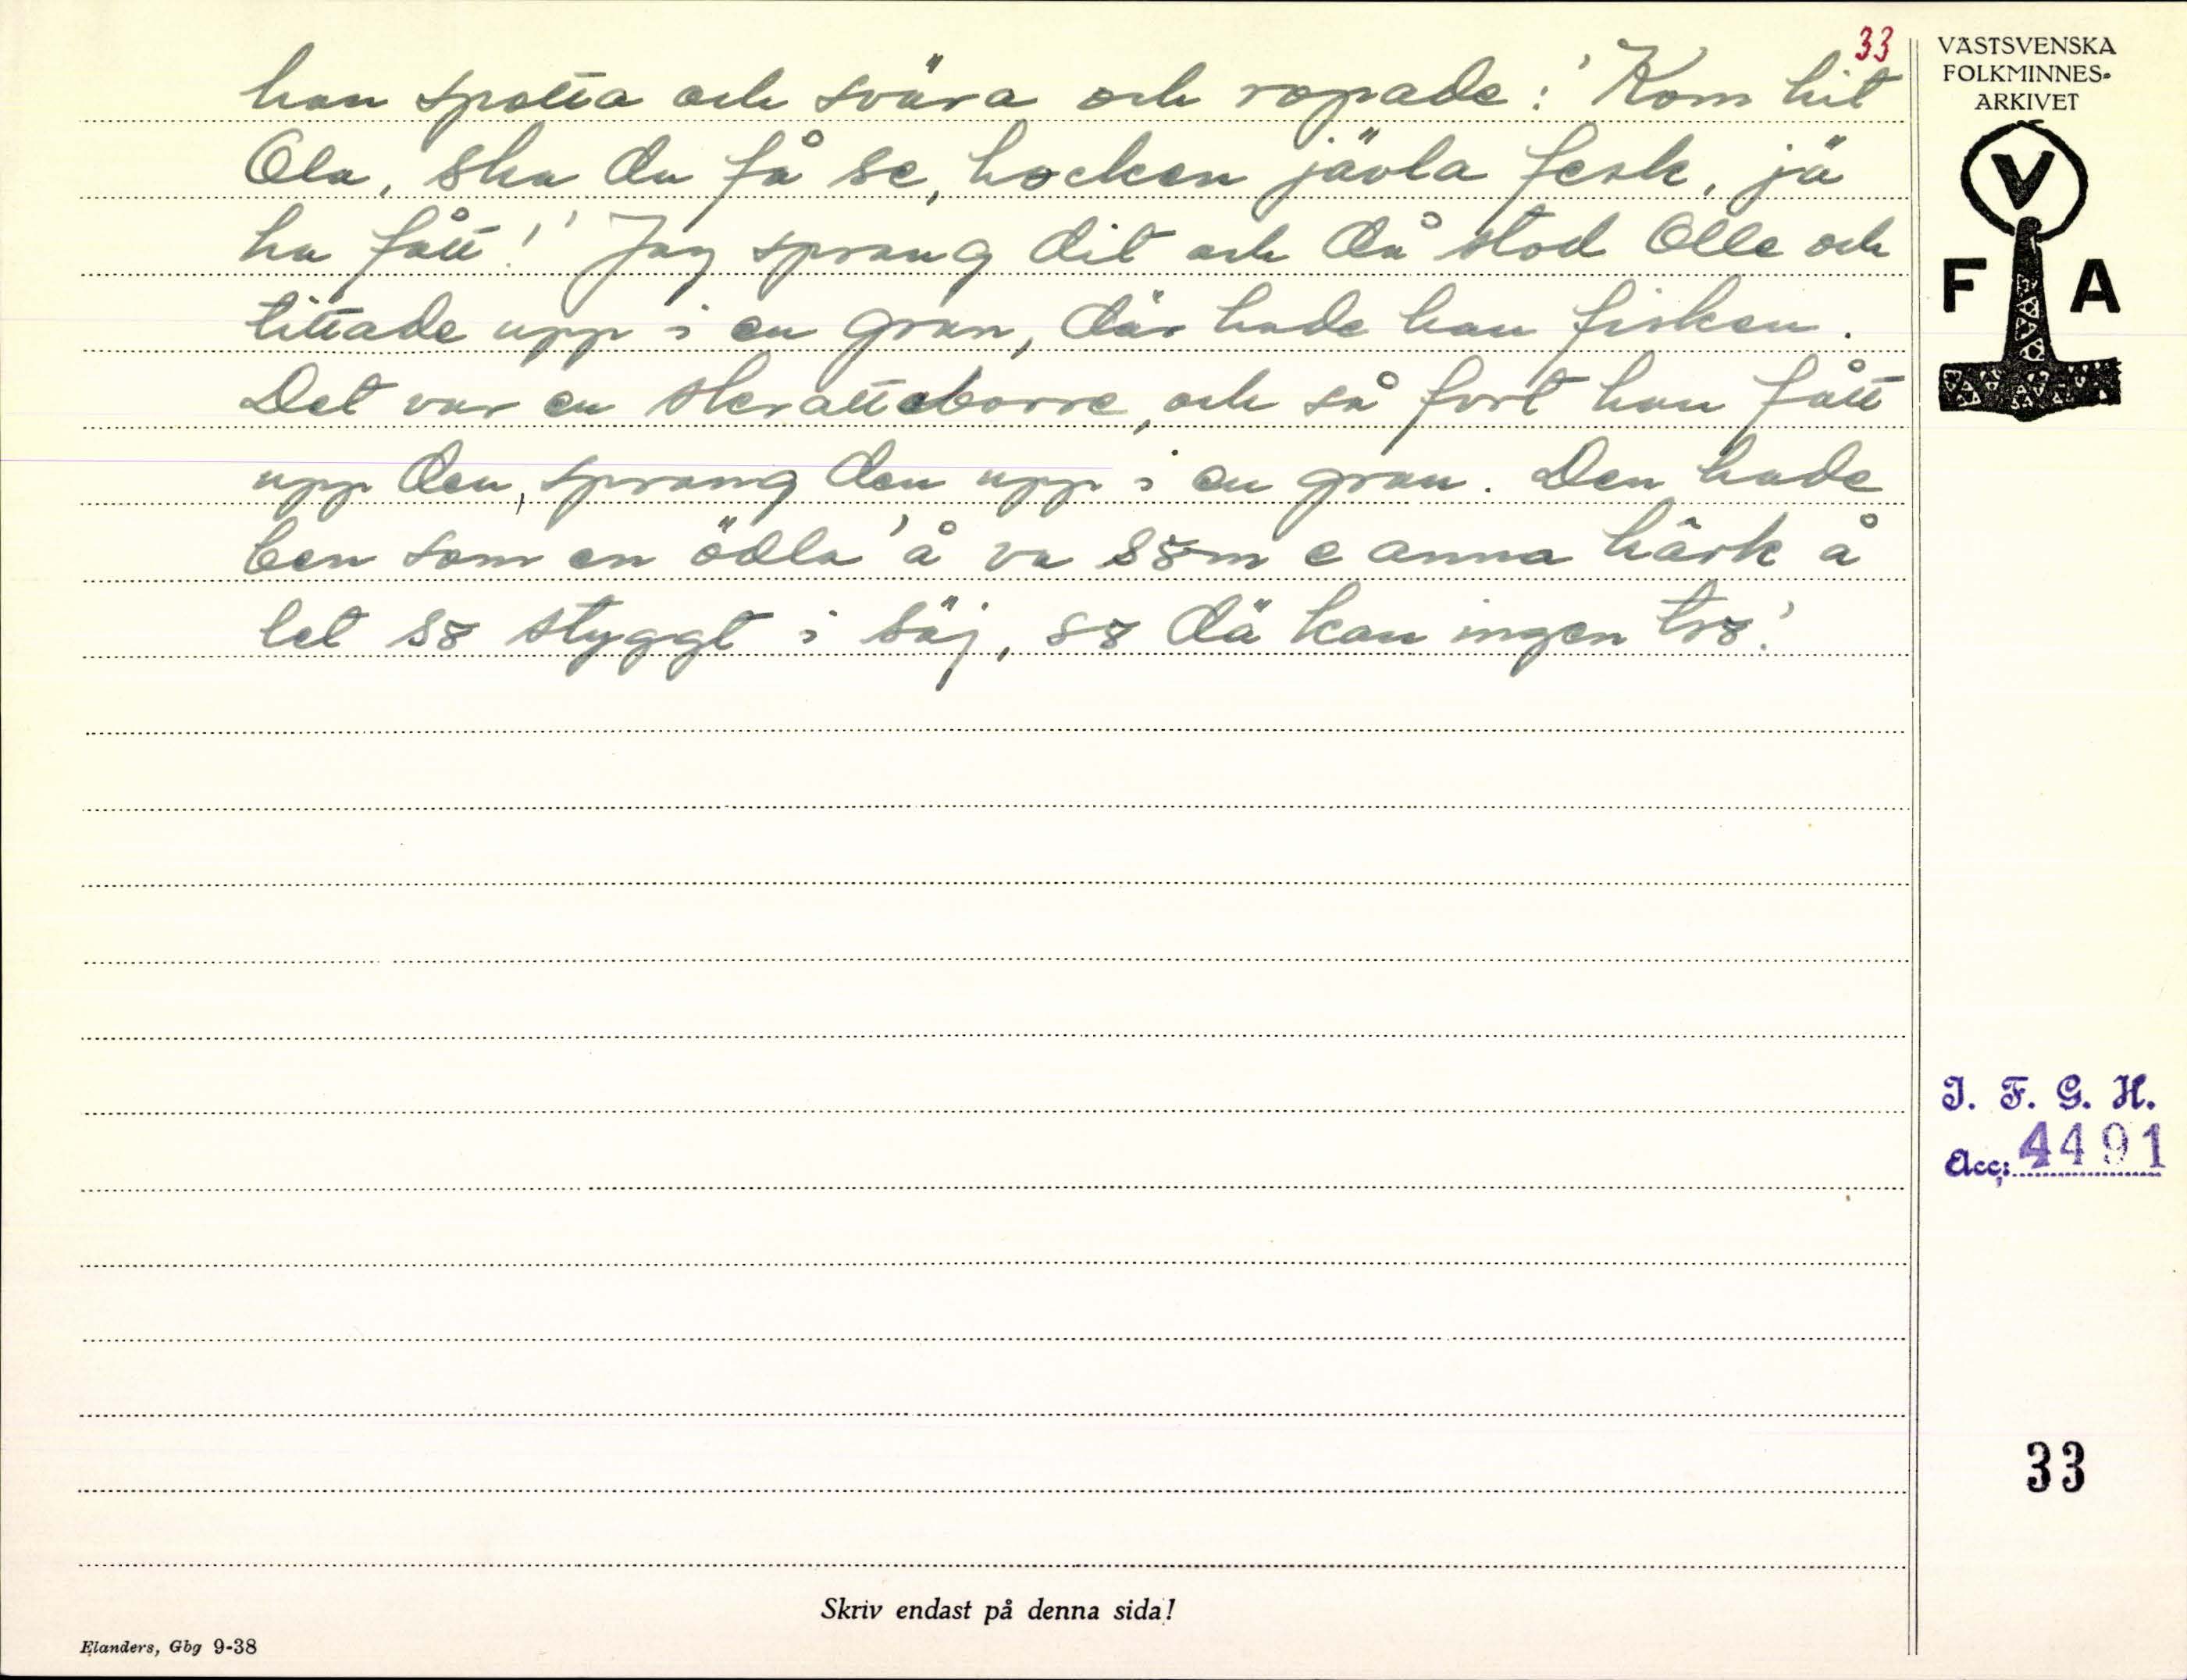 33
han spotta och svära och ropade: 'Kom hit
Ola, ska du få se, hocken jävla fesk, jä
ha fått!' Jag sprang dit och då stod Olle och
tittade upp i en gran, där hade han fisken.
Det var en skratteborre, och så fort han fått
upp den, sprang den upp i en gran. Den hade
ben som en ödla 'å va söm e anna härk å
let sö styggt i säj, sö dä kan ingen trö!'
VÄSTSVENSKA
FOLKMINNES-
ARKIVET
V
F A
I. F. G. H.
Acc: 4491
33
Skriv endast på denna sida!
Elanders, Gbg 9-38